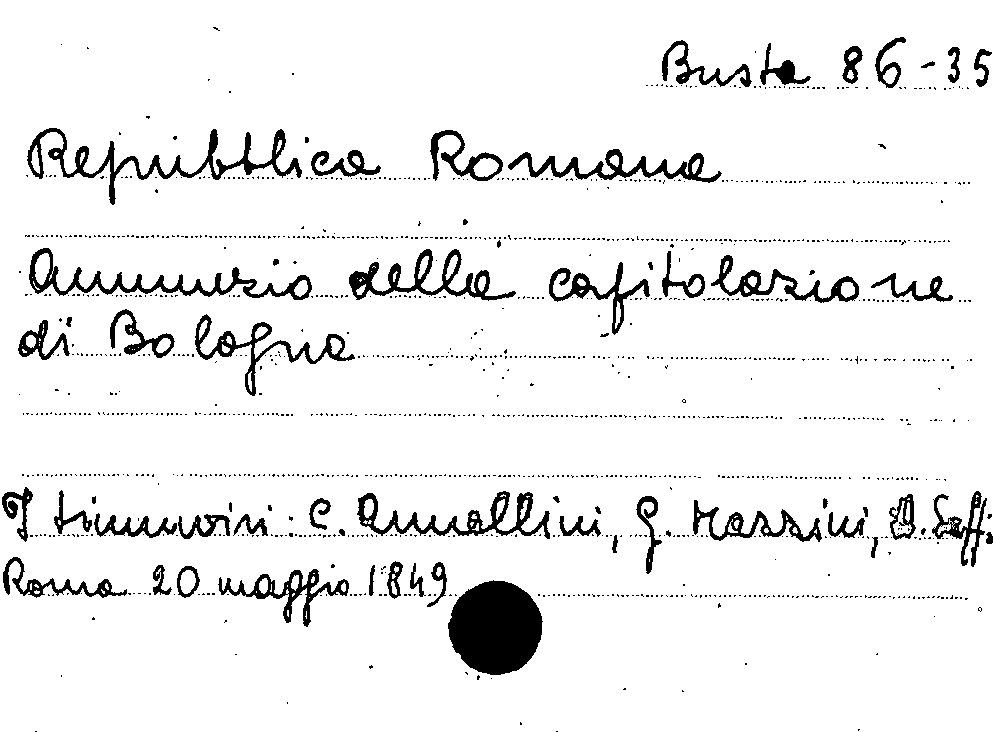 Busta 86-35
Repubblica Romana
Annunzio della capitolazione
di Bologna
I triumviri: C. Armellini, G. Mazzini, A. Saffi
Roma 20 maggio 1849